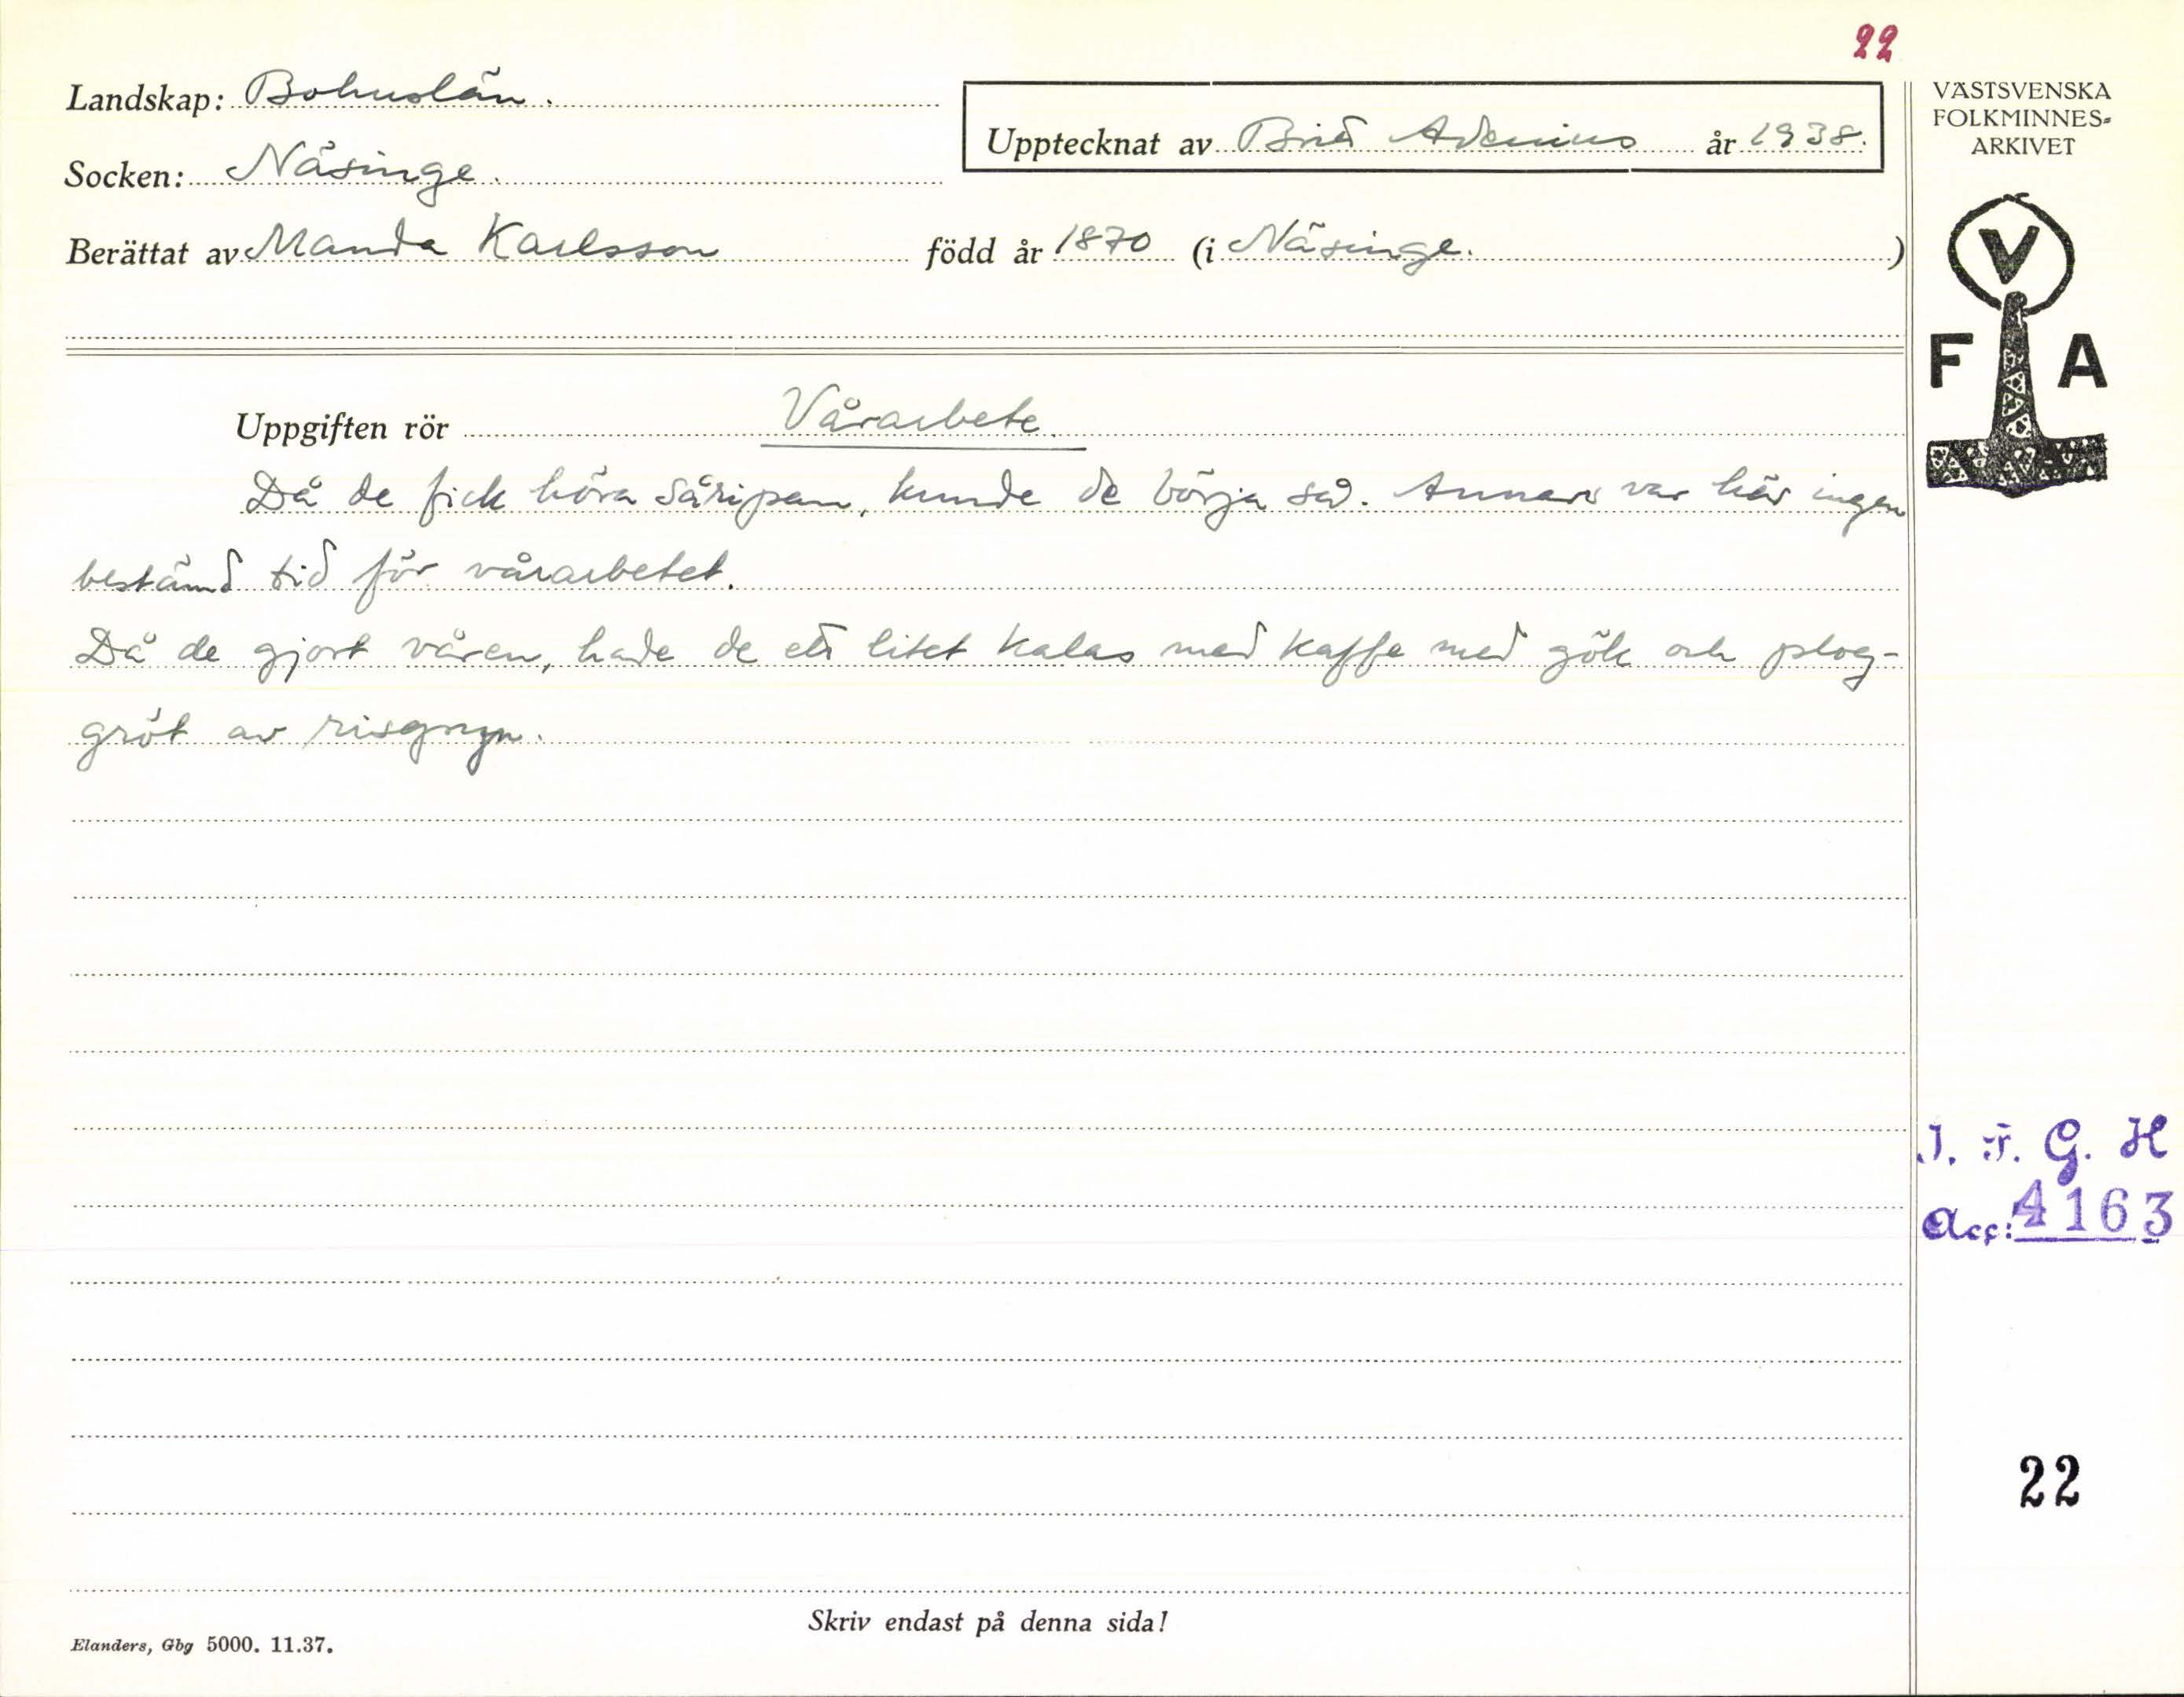 22
Landskap: Bohuslän.
Upptecknat av Brit Adenius år 1938.
Socken: Näsinge.
Berättat av Manda Karlsson född år 1870 (i Näsinge. )
VÄSTSVENSKA
FOLKMINNES-
ARKIVET
V
F A
Uppgiften rör Vårarbete.
Då de fick höra såripan, kunde de börja så. Annars var här ingen
bestämd tid för vårarbetet.
Då de gjort våren, hade de ett litet kalas med kaffe med gök och plog-
gröt av risgryn.
I. F. G. H
Acc: 4163
22
Skriv endast på denna sida!
Elanders, Gbg 5000. 11.37.